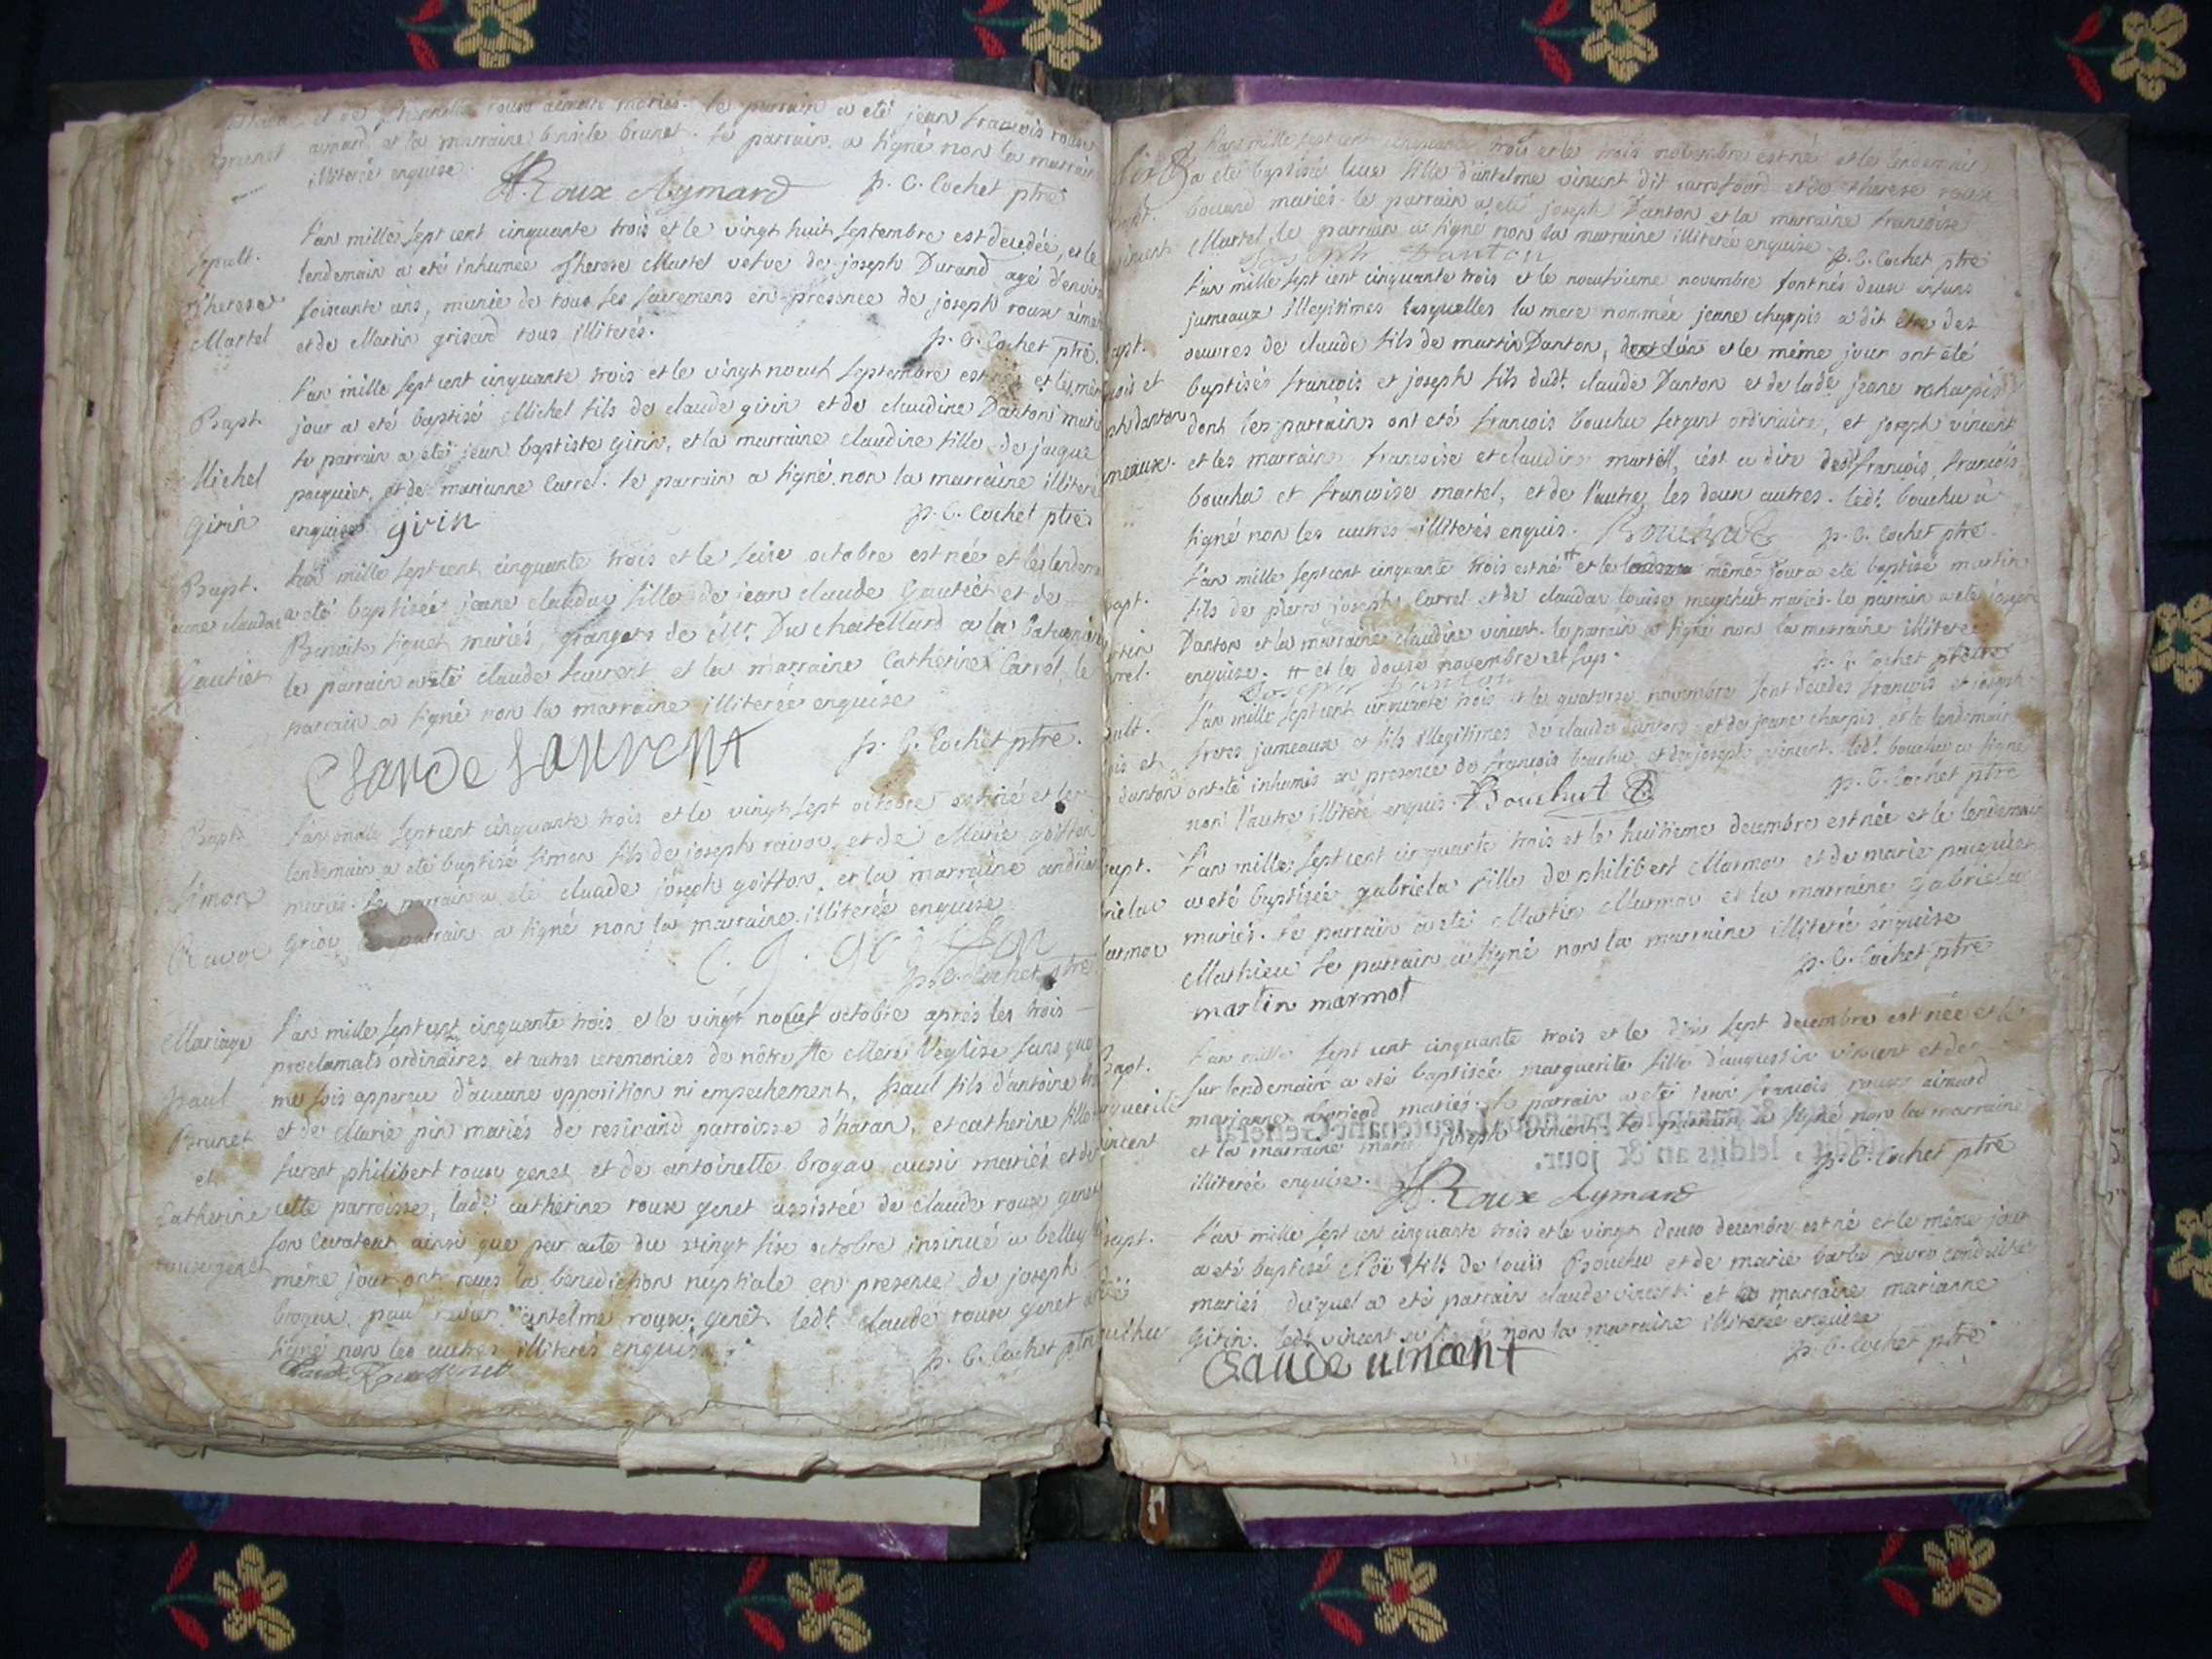 et de roux aimard mariés. le parrain a eté jean francois roux
Brunet
aimard et la marraine benoite brunet. le parrain a signé non la marraine
illiterée enquise.
Roux Aymard
p. C. Cochet ptre
Sepult.
Therese
Martel
l'an mille sept cent cinquante trois et le vingt huit septembre est decedée, et le
lendemain a eté inhumée Therese Martel vefve de joseph Durand agé d'environ
soisante ans, munie de tous ses sacremens en presence de joseph roux aimard
et de Martin grisard tous illiterés.
p. C. Cochet ptre.
Bapt.
Michel
Girin
l'an mille sept cent cinquante trois et le vingt noeuf septembre est né et le même
jour a eté baptisé Michel fils de claude girin et de claudine Danton mariés
le parrain a eté jean baptiste girin, et la marraine claudine fille de jaque
paquiet, et de marianne Carrel. le parrain a signé non la marraine illiterée
enquise girin
p. C. Cochet ptre
Bapt.
jeane claudae
Gautier
l'an mille sept cent cinquante trois et le seise octobre est née et le lendemain
a eté baptisée jeane claudae fille de jean claude Gautiet et de
Benoite siguet mariés, grangers de Mr. Du chatellard a la
le parrain a eté claude laurent et la marraine Catherine Carrel, le
parrain a signé non la marraine illiterée enquise
claude laurent
p. C. Cochet ptre.
Bapt.
Simon
Ravoe
l'an mille sept cent cinquante trois et le vingt sept octobre est né et le
lendemain a eté baptisé simon fils de joseph et de Marie goiffon
mariés. le parrain a eté claude joseph goiffon, et la marraine
parrain a signé non la marraine illiterée enquise
C. J. goiffon
p. C. Cochet ptre
Mariage
Paul
Brunet
et
Catherine
roux genet
l'an mille sept cent cinquante trois et le vingt noeuf octobre après les trois
proclamats ordinaires et autres ceremonies de nôtre ste Mere l'eglise sans que
me sois apperceu d'aucune opposition ni empechement, paul fils d'antoine
et de Marie pin mariés de resinand parroisse d'haran, et catherine fille
furent philibert roux genet, et de antoinette brogae aussi mariés et de
cette parroisse, lade. catherine roux genet assistée de claude roux genet
son curateur ainsi que par acte du vingt sise octobre insinué a belley le
même jour ont receus la benediction nuptiale en presence de joseph
antelme roux genet. ledt. claude roux genet a
signé non les autres illiterés enquis.
p. C. Cochet ptre
Claude Rouxgenet
l'an mille sept cent cinquante trois et le trois novembre est né et le lendemain
a eté baptisée fille d'antelme vincent dit et de therese roux
bouard mariés. le parrain a eté joseph Danton et la marraine francoise
Martel, le parrain a signé non la marraine illiterée enquise
joseph Danton
p. C. Cochet ptre
l'an mille sept cent cinquante trois et le noeufvieme novembre sont nés deux enfans
jumeaux illegitimes lesquelles la mere nommée jeane charpis a dit être des
oeuvres de claude fils de martin Danton, et le même jour ont eté
baptisés francois et joseph fils dudt. claude Danton et de lade. jeane charpis
dont les parrains ont eté francois bouchu sergent ordinaire, et joseph vincent
et les marraines francoise et claudine martel, c'est a dire des francois, francois
bouchu et francoise martel, et de l'autre, les deux autres. ledt. bouchu a
signé non les autres illiterés enquis.
p. C. Cochet ptre.
l'an mille sept cent cinquante trois est né ++ et le même jour a eté baptisé martin
fils de pierre joseph Carrel et de claudae louise mariés. le parrain a eté joseph
Danton et la marraine claudine vincent. le parrain a signé non la marraine illiterée
enquise. ++ et le douse novembre
joseph Danton
p. C. Cochet ptre
l'an mille sept cent cinquante trois et le quatorse novembre sont decedés francois et joseph
freres jumeaux et fils illegitimes de claude Danton et de jeane charpis, et le lendemain
ont eté inhumés en presence de francois bouchu, et de joseph vincent. ledt. bouchu a signé
non l'autre illiteré enquis.
p. C. Cochet ptre
l'an mille sept cent cinquante trois et le huitieme decembre est née et le lendemain
a eté baptisée gabriela fille de philibert Marmou et de marie paquiet
mariés. le parrain a eté Martin Marmou et la marraine Gabriela
Mathieu le parrain a signé non la marraine illiterée enquise
martin marmot
p. C. Cochet ptre
l'an mille sept cent cinquante trois et le dix sept decembre est née et le
sur lendemain a eté baptisée marguerite fille d'augustin vincent et de
marianne mariés. le parrain a eté jean francois roux aimard
et la marraine joseph vincent. le parrain a signé non la marraine
illiterée enquise.
p. C. Cochet ptre
Roux Aymard
l'an mille sept cent cinquante trois et le vingt deux decembre est né et le même jour
a eté baptisé fils de louis Bouchu et de marie barbe
mariés duquel a eté parrain claude vincent et la marraine marianne
Girin. ledt. vincent a signé non la marraine illiterée enquise
p. C. Cochet ptre
Claude vincent